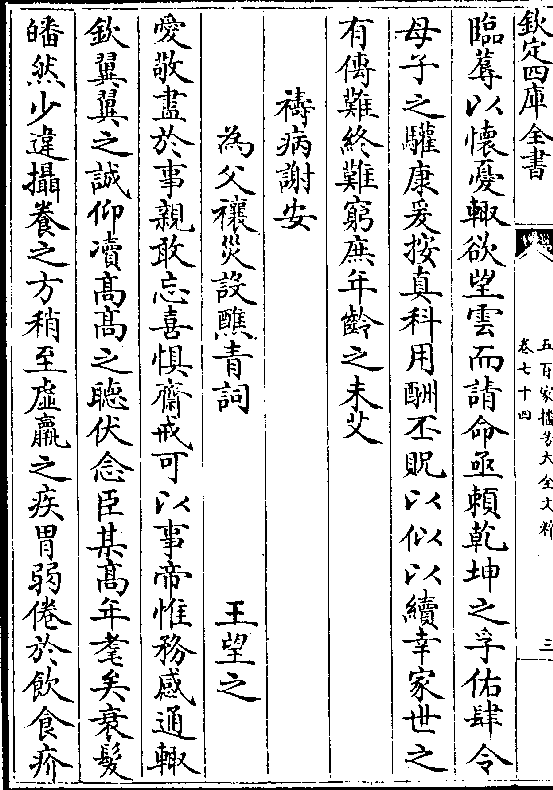 欽定四庫全書
五百家播芳大全文粹
卷七十四
三
臨蓐以懷憂輙欲望雲而請命亟頼乾坤之孚佑肆令
母子之驩康爰按真科用酬丕貺以似以續幸家世之
有傳難終難窮庶年齡之未艾
禱病謝安
為父禳災設醮青詞 王望之
愛敬盡於事親敢忘喜懼齋戒可以事帝惟務感通輙
欽翼翼之誠仰凟髙髙之聴伏念臣某髙年耄矣衰髮
皤然少違攝養之方稍至虛羸之疾胃弱倦於飲食疥